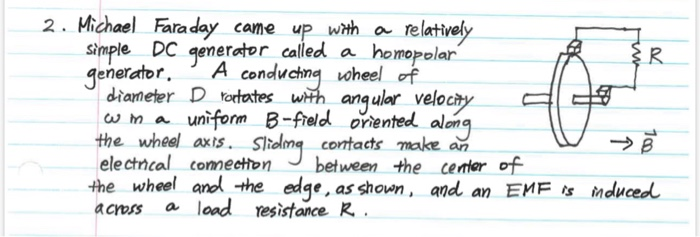 2. Michael Faraday came up with a relatively
simple DC generator called a homopolar
generator. A conducting wheel of
diameter D rortates with angular velocity
ω in a uniform B-field oriented along
the wheel axis. Sliding contacts make an
electrical connection between the center of
the wheel and the edge, as shown, and an EMF is induced
across a load resistance R.
R
→ B⃗